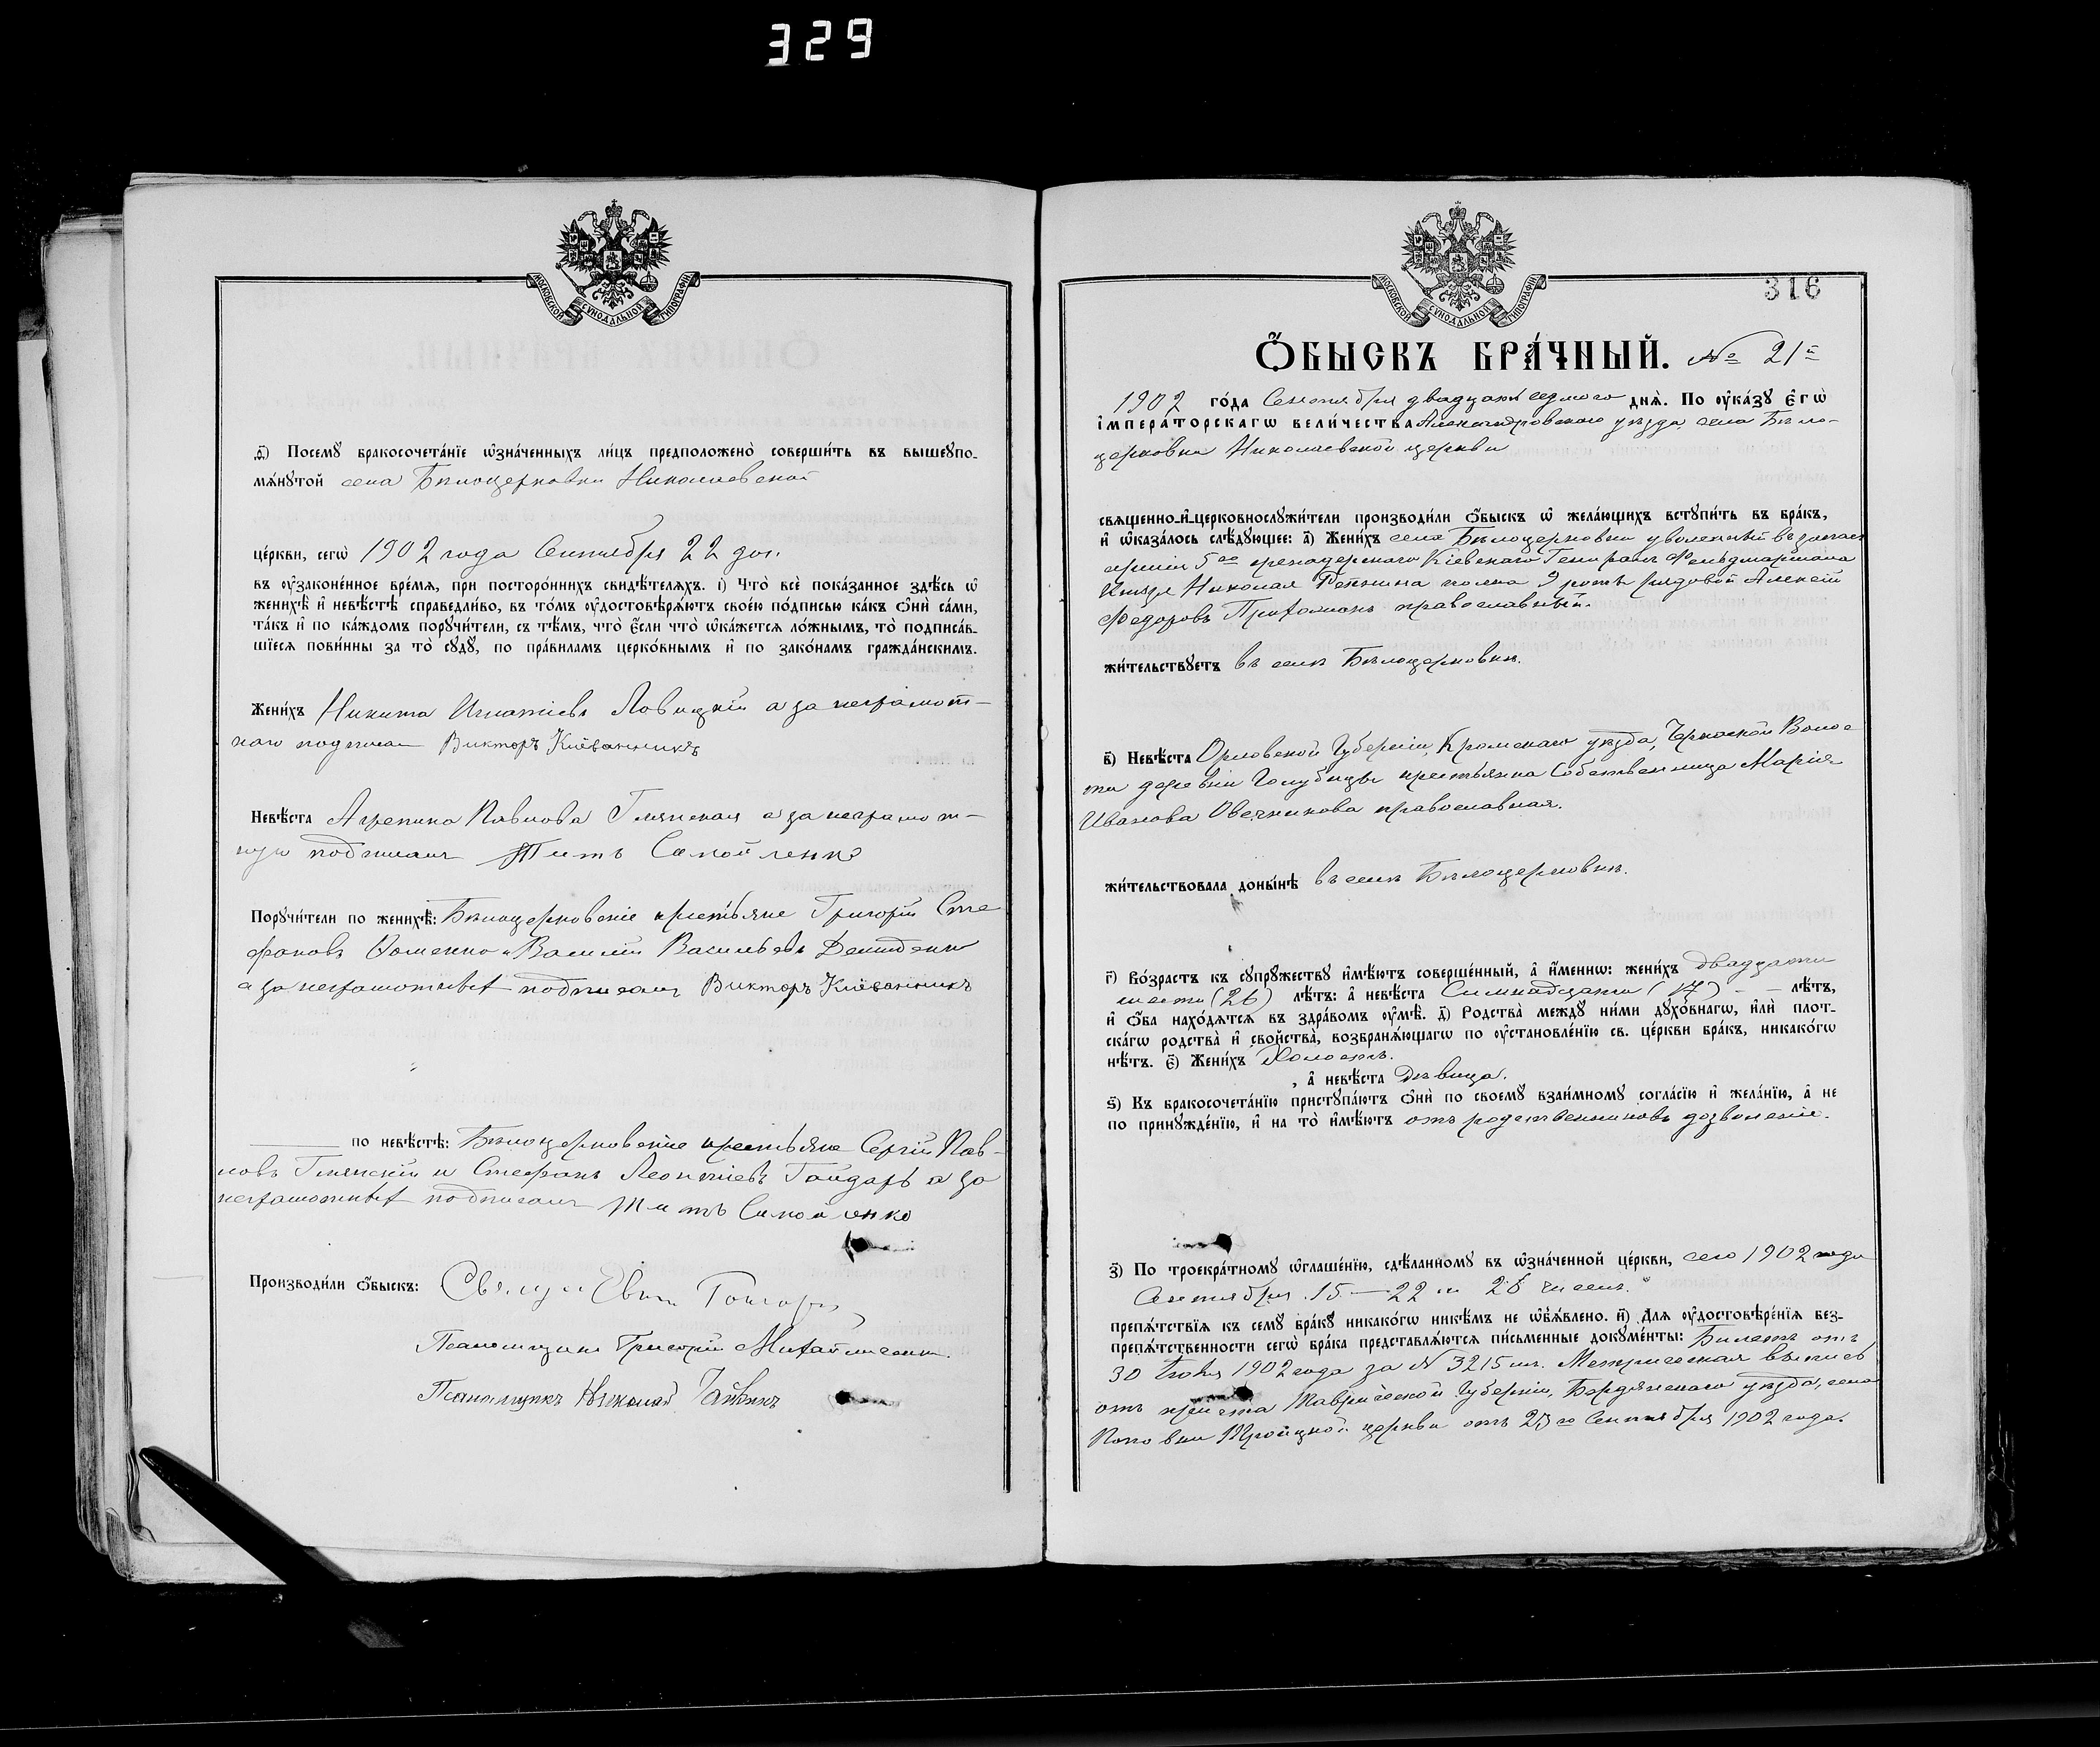 329
МОСКОВСКОЙ СѴНОДАЛЬНОЙ ТИПОГРАФІИ
ѳ҃) Посемꙋ бракосочета́нїе ѡ҆зна́ченныхъ ли́цъ предположено̀ соверши́ть въ вышеꙋпо-
мѧ́нꙋтой села Бѣлоцерковки Николаевской
це́ркви, сегѡ̀ 1902 года Сентября 22 дня.
въ ᲂу҆законе́нное вре́мѧ, при посторо́ннихъ свидѣ́телѧхъ. і҃) Что̀ всѐ пока́занное здѣ́сь ѡ҆
женихѣ̀ и҆ невѣ́стѣ справедли́во, въ то́мъ ᲂу҆достовѣрѧ́ютъ свое́ю по́дписью ка́къ ѻ҆нѝ са́ми,
та́къ и҆ по ка́ждомъ порꙋчи́тели, съ тѣ́мъ, что̀ є҆́сли что̀ ѡ҆ка́жетсѧ ло́жнымъ, то̀ подписа́в-
шїесѧ пови́нны за то̀ сꙋдꙋ̀, по пра́виламъ церко́внымъ и҆ по зако́намъ гражда́нскимъ.
Жени́хъ Никита Игнатіевъ Ловицкій а за неграмот-
наго подписал Викторъ Кіеваникъ
Невѣ́ста Агрепина Павлова Глянская а за неграмот-
ную подписалъ Титъ Самойленко
Порꙋчи́тели по женихѣ̀: Бѣлоцерковскіе крестьяне Григорій Сте
фановъ Фоменко и Василій Васильевъ Демиденко
а за неграмотныхъ подписалъ Викторъ Кіеваникъ
по невѣ́стѣ: Бѣлоцерковскіе крестьяне Сергій Пав-
ловъ Глянскій и Стефанъ Леонтіевъ Гайдаръ а за
неграмотныхъ подписалъ Титъ Самойленко
Производи́ли ѻ҆́быскъ:
Псаломщикъ Григорій
Псаломщикъ Николай
МОСКОВСКОЙ СѴНОДАЛЬНОЙ ТИПОГРАФІИ
316
Ѻ҆́БЫСКЪ БРА́ЧНЫЙ. № 21й
1902 го́да Сентября двадцать седмого днѧ̀. По ᲂу҆ка́зꙋ є҆гѡ̀
і҆мпера́торскагѡ вели́чества Александровскаго уѣзда, села Бѣло-
церковки Николаевской церкви
свѧщенно-и҆-церковнослꙋжи́тели производи́ли ѻ҆́быскъ ѡ҆ жела́ющихъ встꙋпи́ть въ бра́къ,
и҆ ѡ҆каза́лось слѣ́дꙋющее: а҃) Жени́хъ села Бѣлоцерковки уволенный въ запасъ
арміи 5го гренадерскаго Кіевскаго Генералъ Фельдмаршала
Князя Николая Репнина полка 9 роты рядовой Алексѣй
Федоровъ православный.
жи́тельствꙋетъ въ селѣ Бѣлоцерковкѣ.
в҃) Невѣ́ста Орловской Губерніи, Кромскаго уѣзда, Волос
ти деревни Голубицы крестьянка Собственница Марія
Иванова Овечникова православная.
жи́тельствовала доны́нѣ въ селѣ Бѣлоцерковкѣ.
г҃) Во́зрастъ къ сꙋпрꙋ́жествꙋ и҆мѣ́ютъ соверше́нный, а҆ и҆́меннѡ: жени́хъ двадцати
шести (26) лѣ́тъ: а҆ невѣ́ста Симнадцати (17) - - лѣ́тъ,
и҆ ѻ҆́ба нахо́дѧтсѧ въ здра́вомъ ᲂу҆мѣ̀. д҃) Родства̀ междꙋ ни́ми дꙋхо́внагѡ, и҆лѝ плот-
ска́гѡ родства̀ и҆ свойства̀, возбранѧ́ющагѡ по ᲂу҆становле́нїю св. це́ркви бра́къ, никако́гѡ
нѣ́тъ. є҃) Жени́хъ Холостъ.
, а҆ невѣ́ста Дѣвица.
ѕ҃) Къ бракосочета́нїю пристꙋпа́ютъ ѻ҆нѝ по своемꙋ̀ взаи́мномꙋ согла́сїю и҆ жела́нїю, а҆ не
по принꙋжде́нїю, и҆ на то̀ и҆мѣ́ютъ отъ родственниковъ дозволеніе.
з҃) По троекра́тномꙋ ѡ҆глаше́нїю, сдѣ́ланномꙋ въ ѡ҆зна́ченной це́ркви, сего 1902 года
Сентября 15 — 22 и 26 чиселъ.
препѧ́тствїѧ къ семꙋ̀ бра́кꙋ никако́гѡ никѣ́мъ не ѡ҆бъѧ́влено. и҃) Длѧ ᲂу҆достовѣре́нїѧ без-
препѧ́тственности сегѡ̀ бра́ка представлѧ́ютсѧ пи́сьменные докꙋме́нты: Билетъ отъ
30 1902 года за № 3215мъ. Метрическая выпись
отъ причта Таврической Губерніи, Бердянскаго уѣзда, села
Поповки Троицкой церкви отъ 23го Сентября 1902 года.